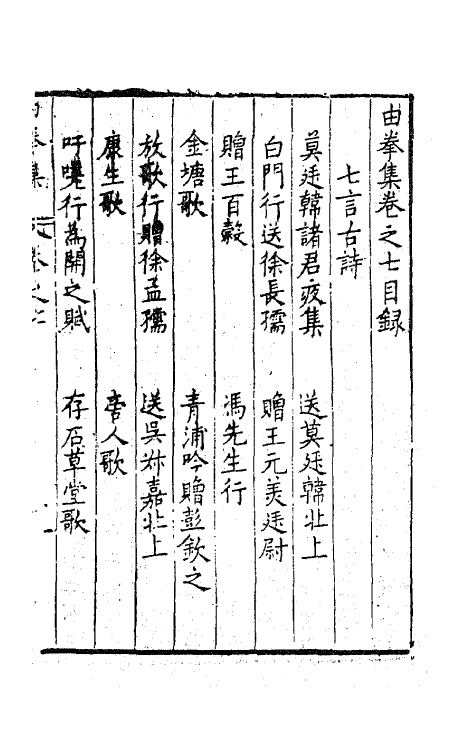 由拳集卷之七目錄
七言古詩
莫廷韓諸君夜集 送莫廷韓北上
白門行送徐長孺 贈王元美廷尉
贈王百穀 馮先生行
金塘歌 青浦吟贈彭欽之
放歌行贈徐孟孺 送吳叔嘉北上
康生歌 ?人歌
吁嗟行為開之賦 存石草堂歌
由拳集 卷之七 一